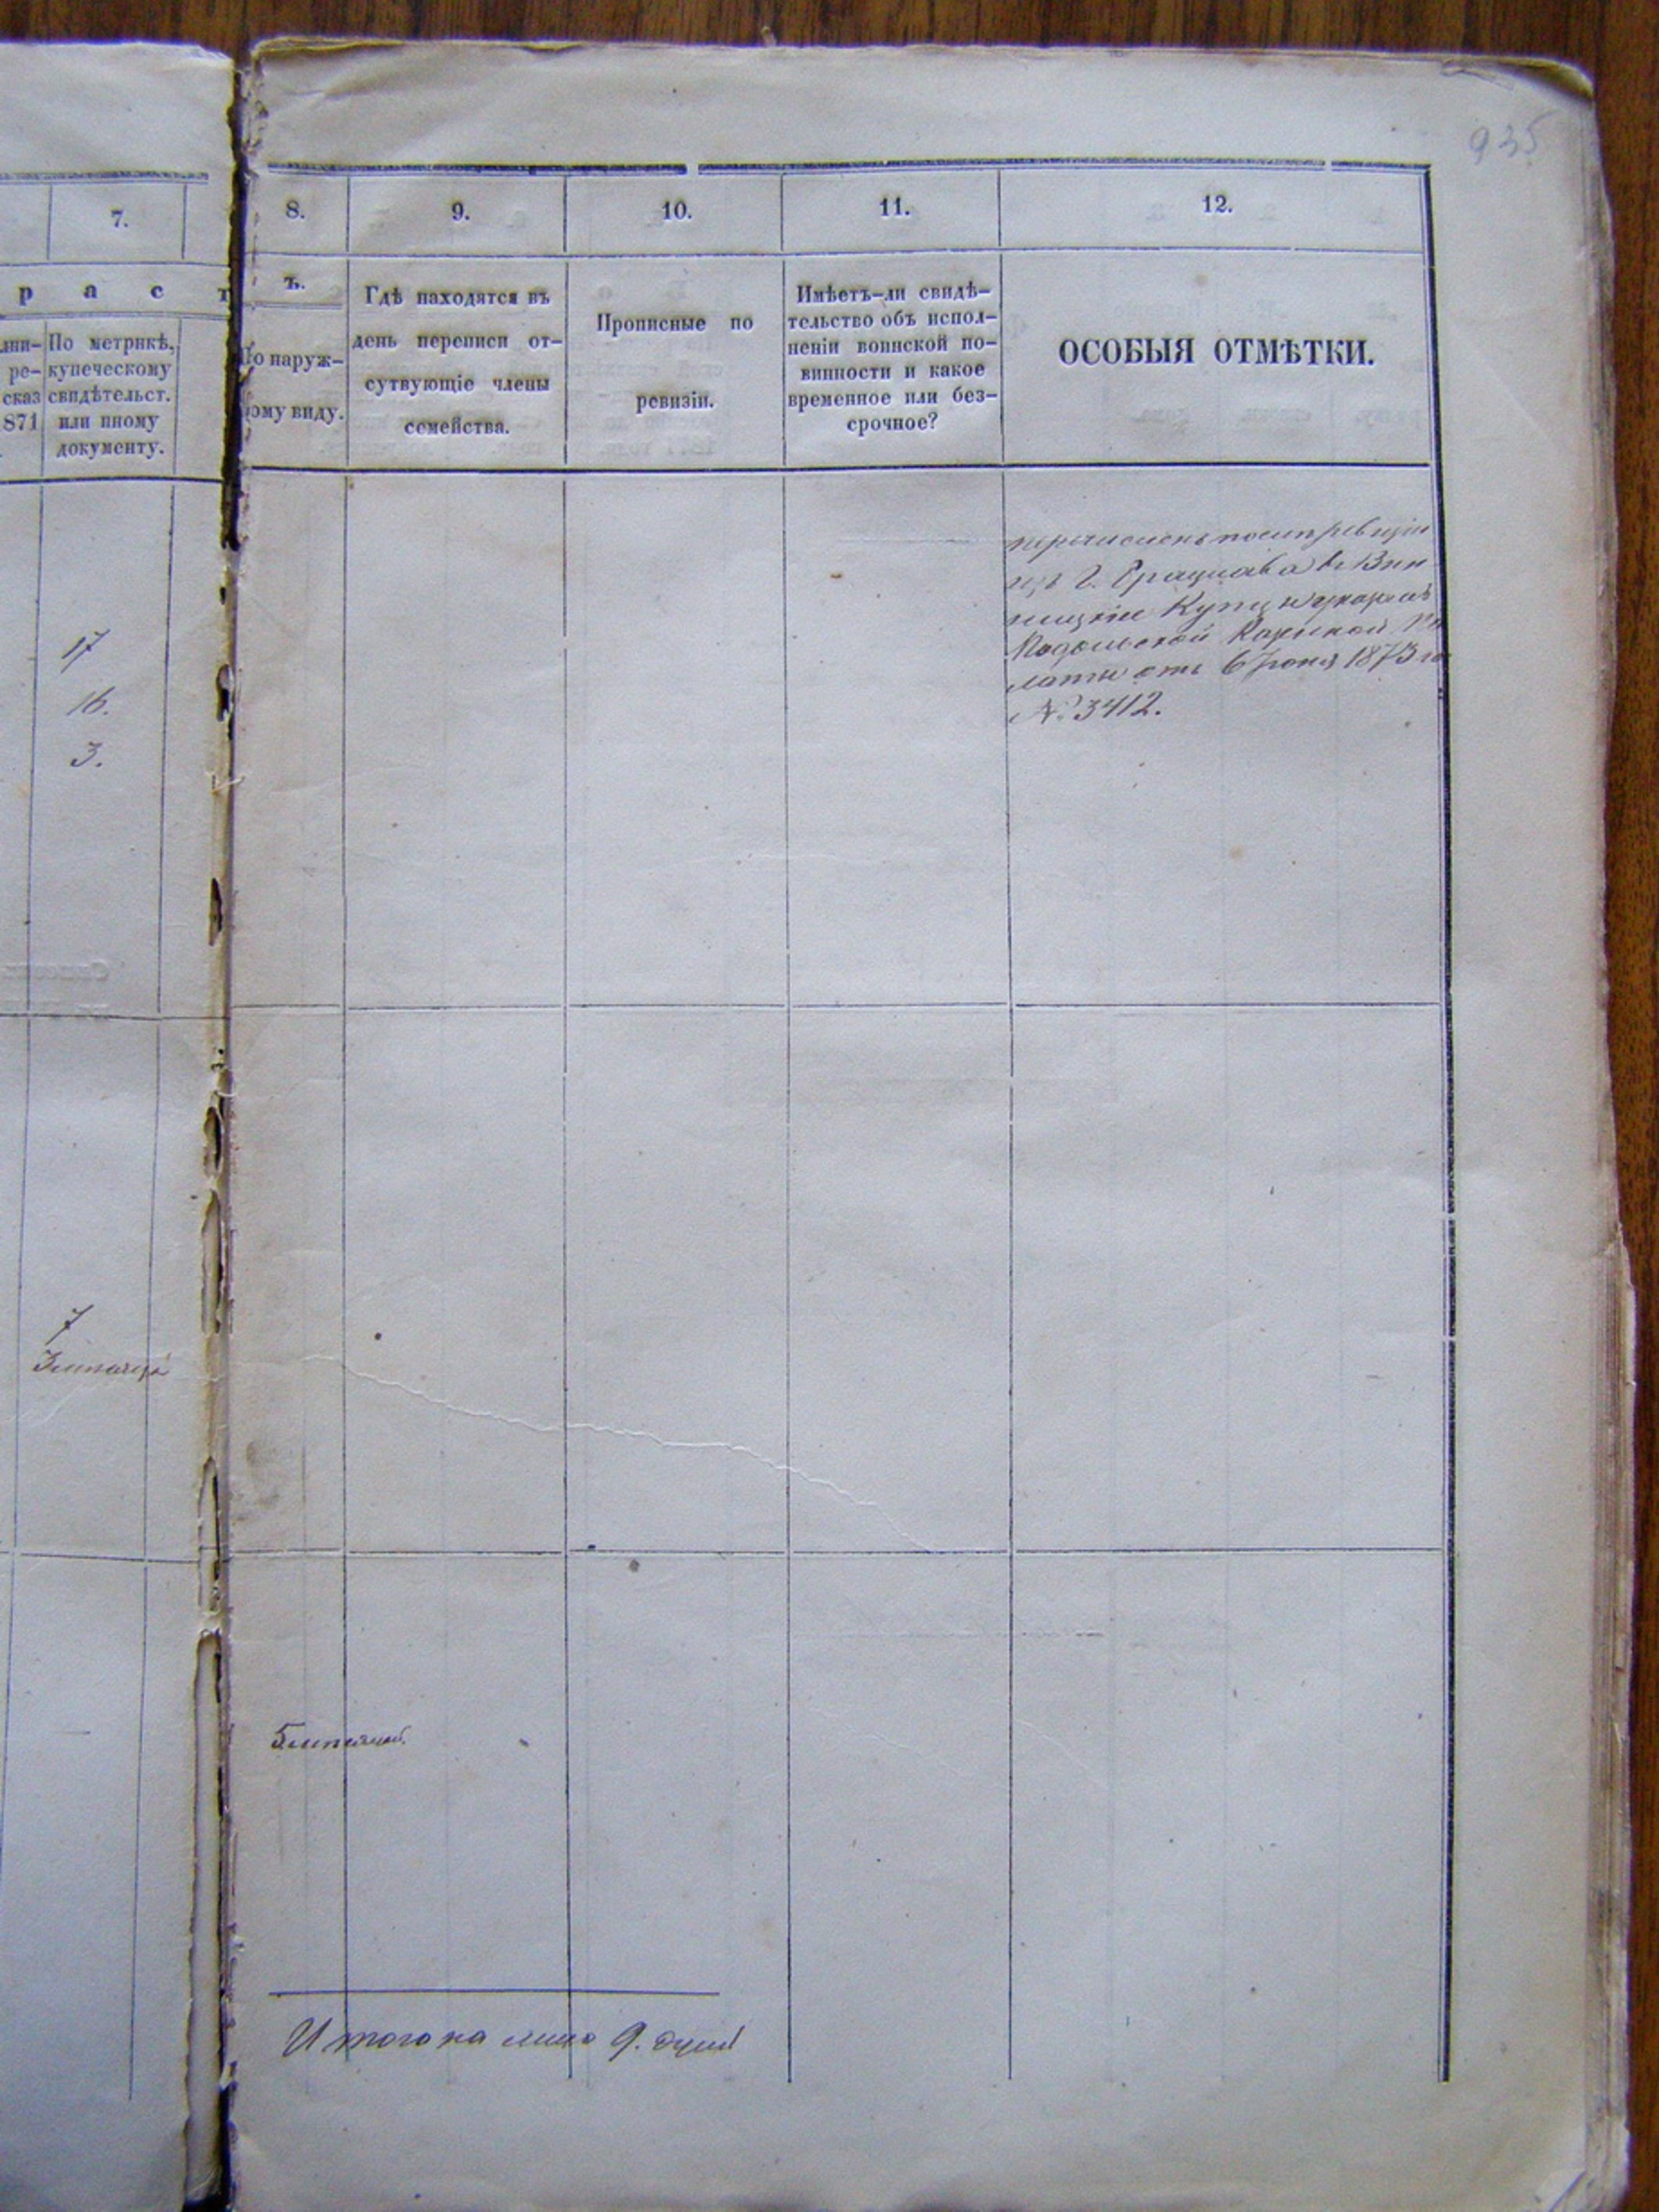 935
7.
р а с т
лни-
ре-
сказ
871
По метрикѣ,
купеческому
свидѣтельст.
или иному
документу.
17
16.
3.
7
8.
ъ.
По наруж-
ному виду.
9.
Гдѣ находятся въ
день переписи от-
сутвующіе члены
семейства.
10.
Прописные по
ревизіи.
11.
Имѣетъ-ли свидѣ-
тельство объ испол-
неніи воинской по-
винности и какое
временное или без-
срочное?
12.
ОСОБЫЯ ОТМѢТКИ.
перечисленъ послѣ ревизіи
изъ г. Брацлава въ Вин
ницкіе Купцы указомъ
Подольской Казенной Па
латы отъ 6 Іюня 1873 го
№ 3412.
Итого на лицо 9. душъ